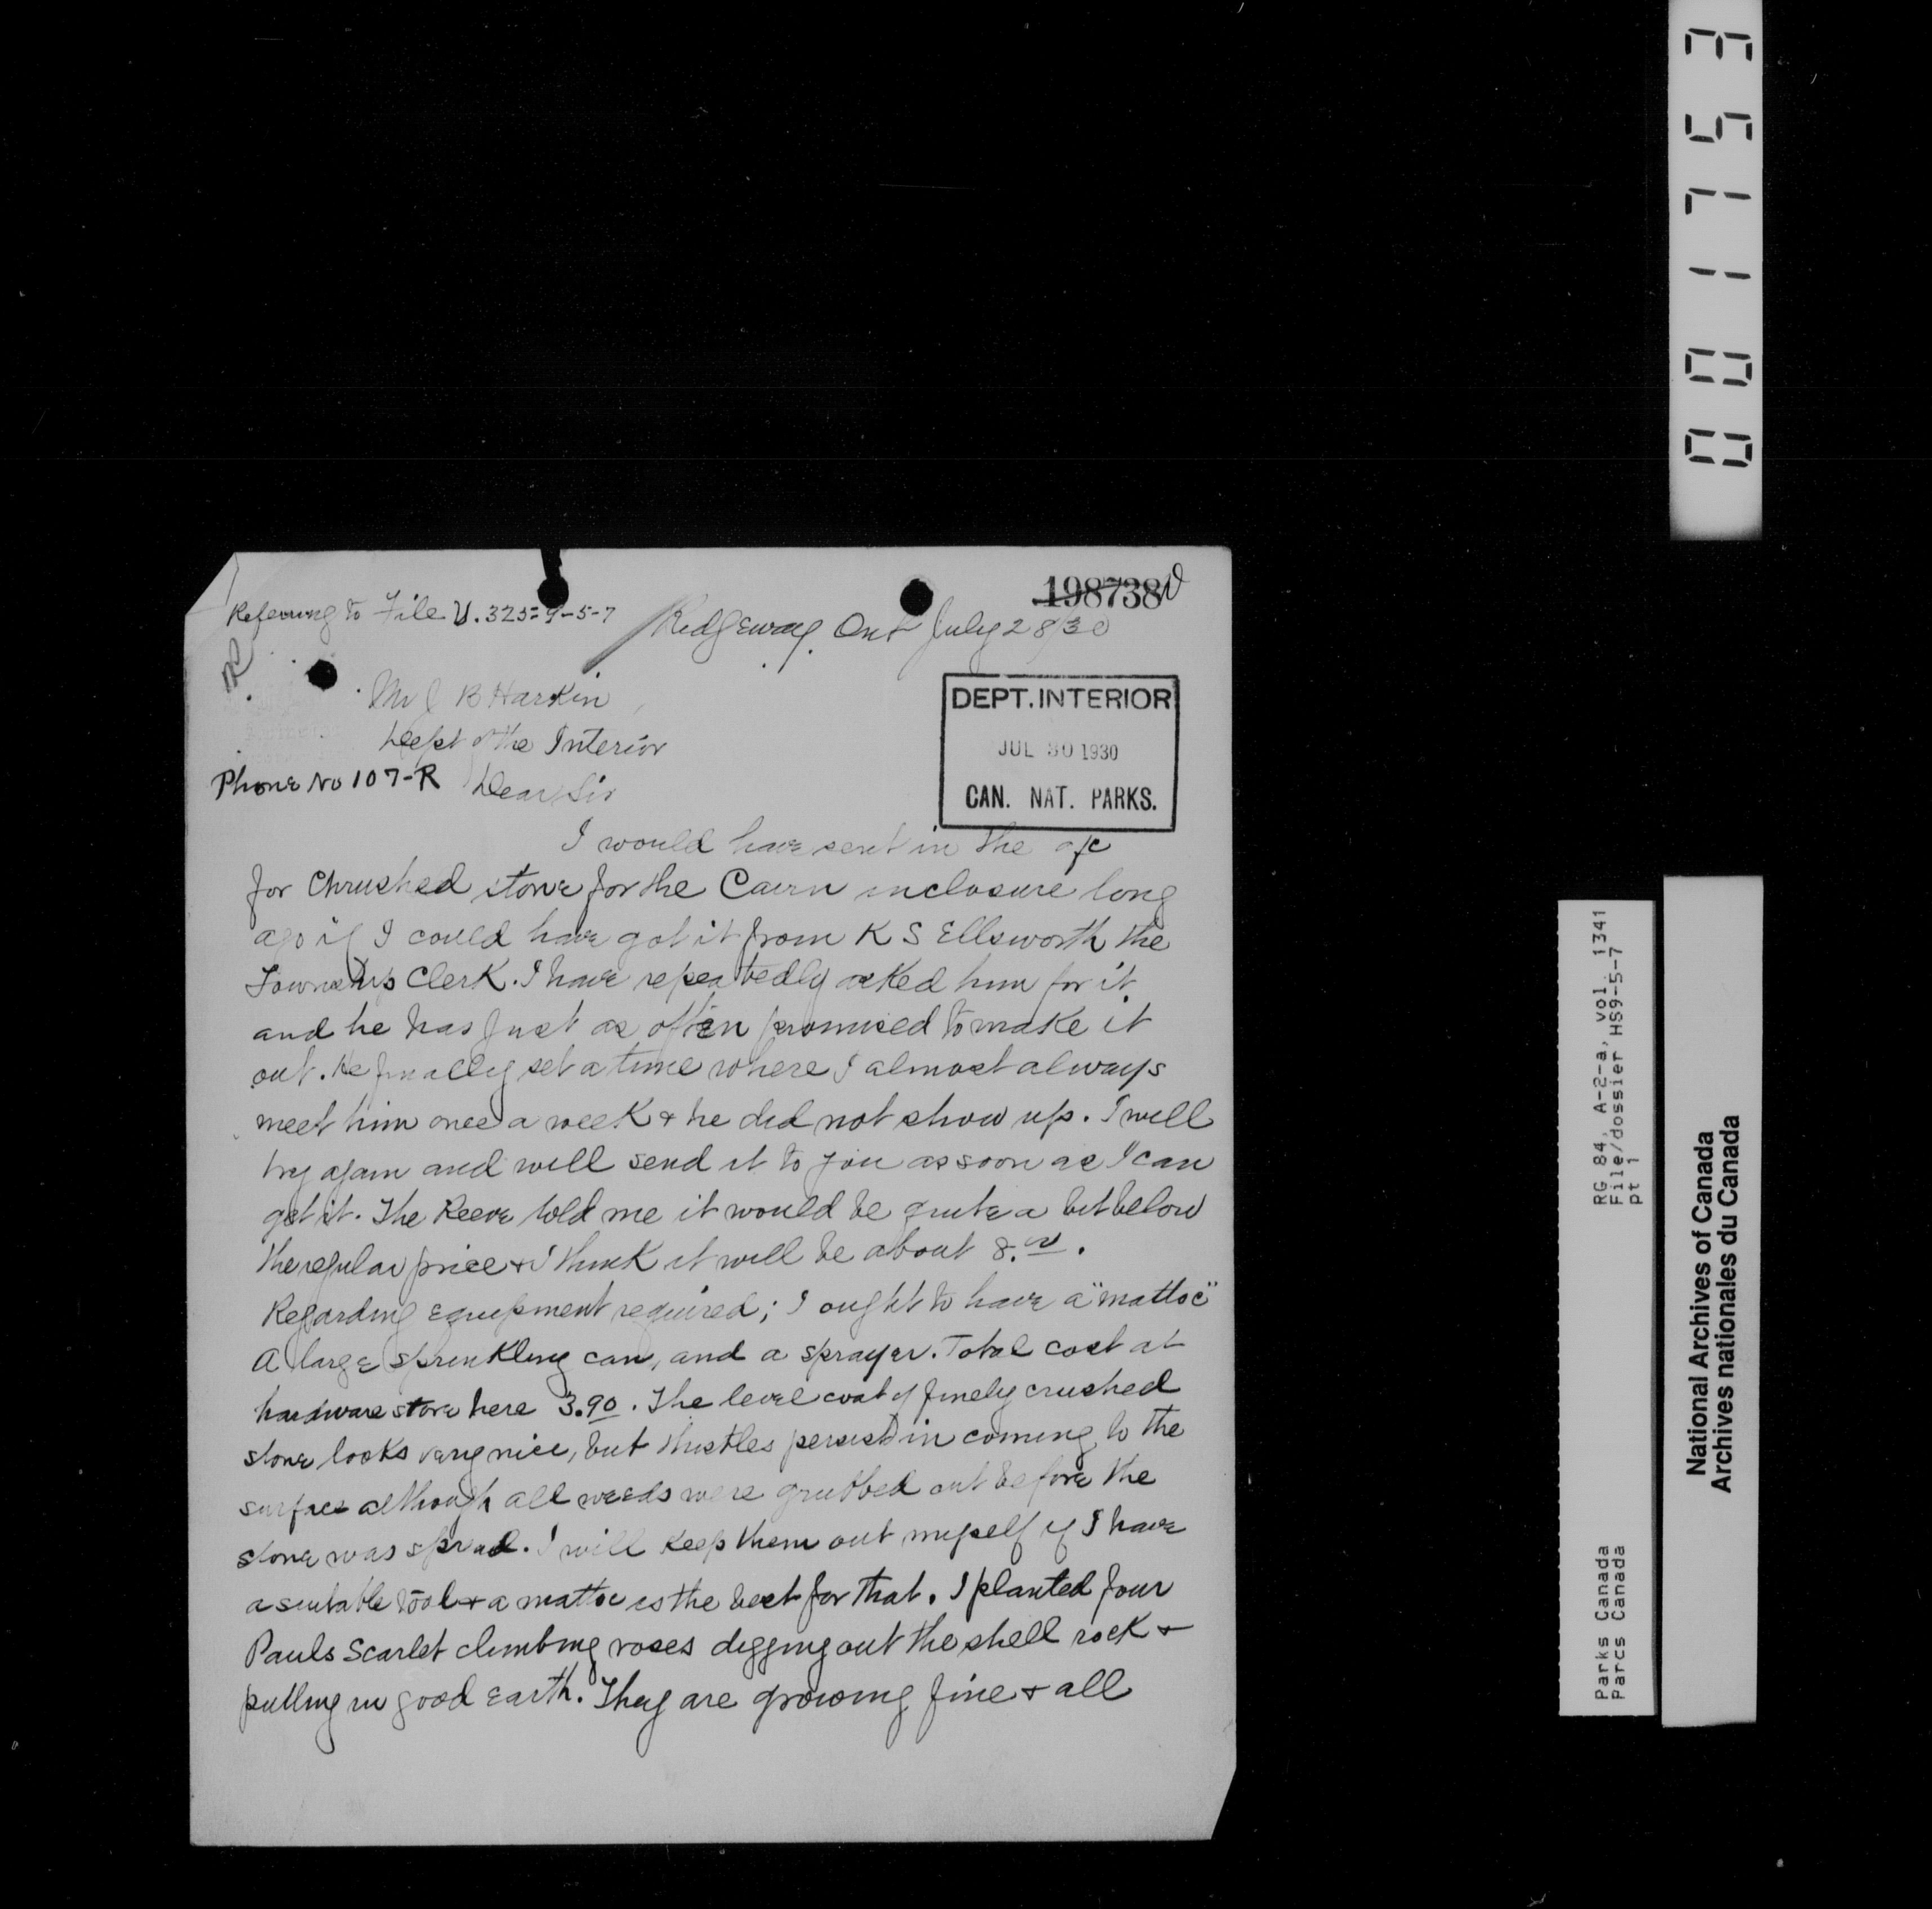 001753
198738
Referring to File U.325=9-5-7
Ridgeway. Ont July 28/30
Mr J B Harkin
Dept of the Interior
DEPT. INTERIOR
JUL 30 1930
CAN. NAT. PARKS.
Phone No 107-R
Dear Sir
I would have sent in the a/c
for Chrushed stone for the Cairn inclosure long
ago if I could have got it from K S Ellsworth the
Township Clerk. I have repeatedly asked him for it
and he has just as often promised to make it
out. He finally set a time where I almost always
meet him once a week & he did not show up. I will
try again and will send it to you as soon as I can
get it. The Reeve told me it would be quite a bit below
the regular price & I think it will be about 8.00.
Regarding equipment required; I ought to have a "mattoc"
A large sprinkling can, and a sprayer. Total cost at
hardware store here 3.90. The level coat of finely crushed
stone looks very nice, but thistles persist in coming to the
surface although all weeds were grubbed out before the
stone was spread. I will keep them out myself if I have
a suitable tool & a mattoc is the best for that. I planted four
Pauls Scarlet climbing roses digging out the shell rock &
putting in good earth. They are growing fine & all
RG 84, A-2-a, vol. 1341
File/dossier HS9-5-7
pt 1
Parks Canada
Parcs Canada
National Archives of Canada
Archives nationales du Canada